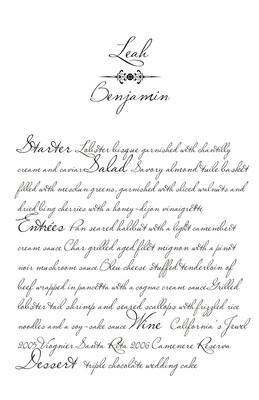 Leah
Benjamin
Starter Lobster bisque garnished with chantilly
cream and caviar Salad Savory almond tuile basket
filled with mesclun greens, garnished with sliced walnuts and
dried bing cherries with a honey-dijon vinaigrette
Entrées Pan seared halibut with a light camembert
cream sauce Char grilled aged filet mignon with a pinot
noir mushroom sauce Bleu cheese stuffed tenderloin of
beef wrapped in pancetta with a cognac cream sauce Grilled
lobster tail shrimp and seared scallops with frizzled rice
noodles and a soy-sake sauce Wine California's Jewel
2005 Viognier Santa Rita 2006 Camenere Reserva
Dessert triple chocolate wedding cake